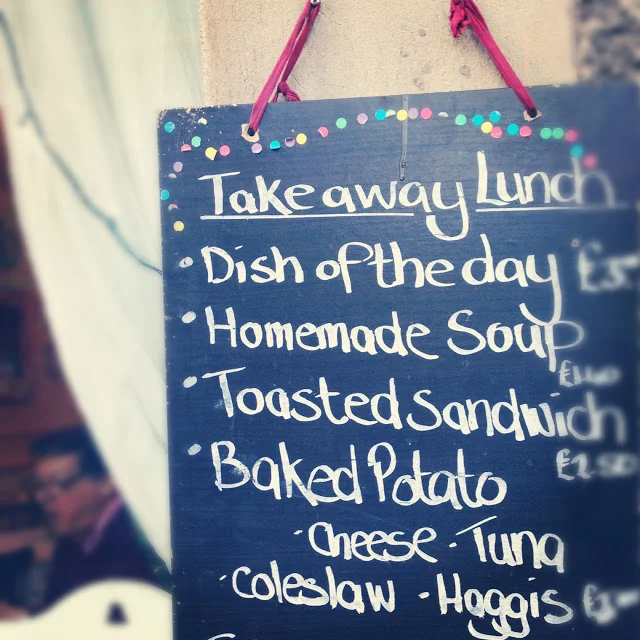 Takeaway Lunch
• Dish of the day
• Homemade Soup
• Toasted Sandwich
• Baked Potato
· Cheese · Tuna
· Coleslaw · Haggis